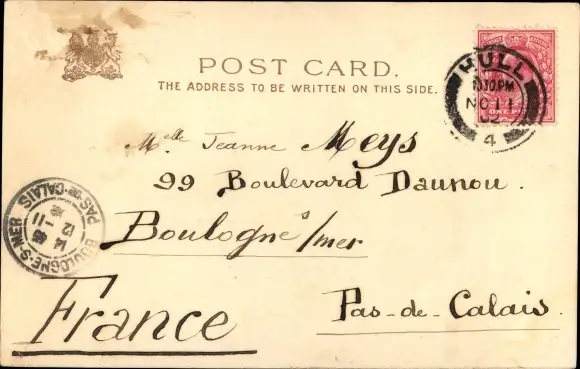 POST CARD.
THE ADDRESS TO BE WRITTEN ON THIS SIDE.
HULL
NO 11
02
4
ONE
Melle Jeanne Meys
99 Boulevard Daunou.
Boulogne s/mer
Pas-de-Calais.
France
BOULOGNE-S-MER
PAS-DE-CALAIS
14 45
12-11